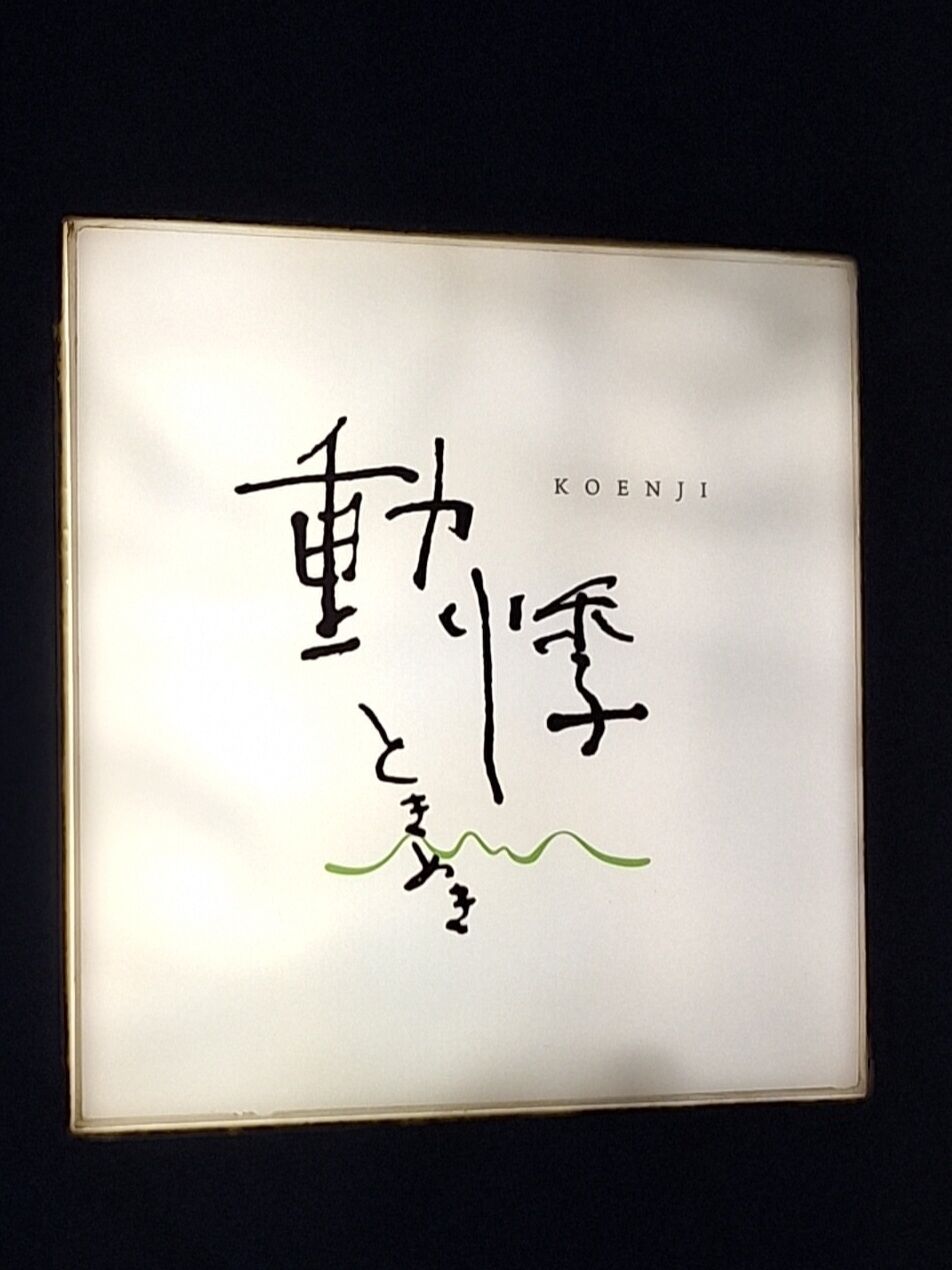 動悸
ときめき
KOENJI